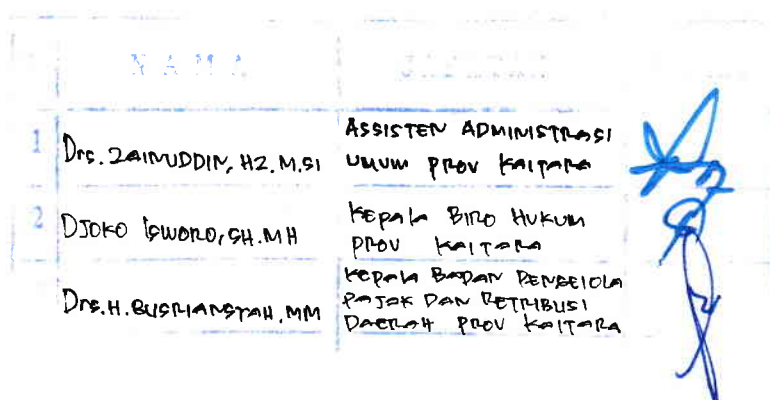 NAMA
1 Drs. ZAINUDDIN, HZ. M.SI
ASSISTEN ADMINISTRASI
UMUM PROV KALTARA
2 DJOKO ISWORO, SH.MH
Kepala BIRO HUKUM
PROV KALTARA
Drs. H. BUSRIANSYAH. MM
KEPALA BADAN PENGELOLA
PAJAK DAN RETRIBUSI
DAERAH PROV KALTARA